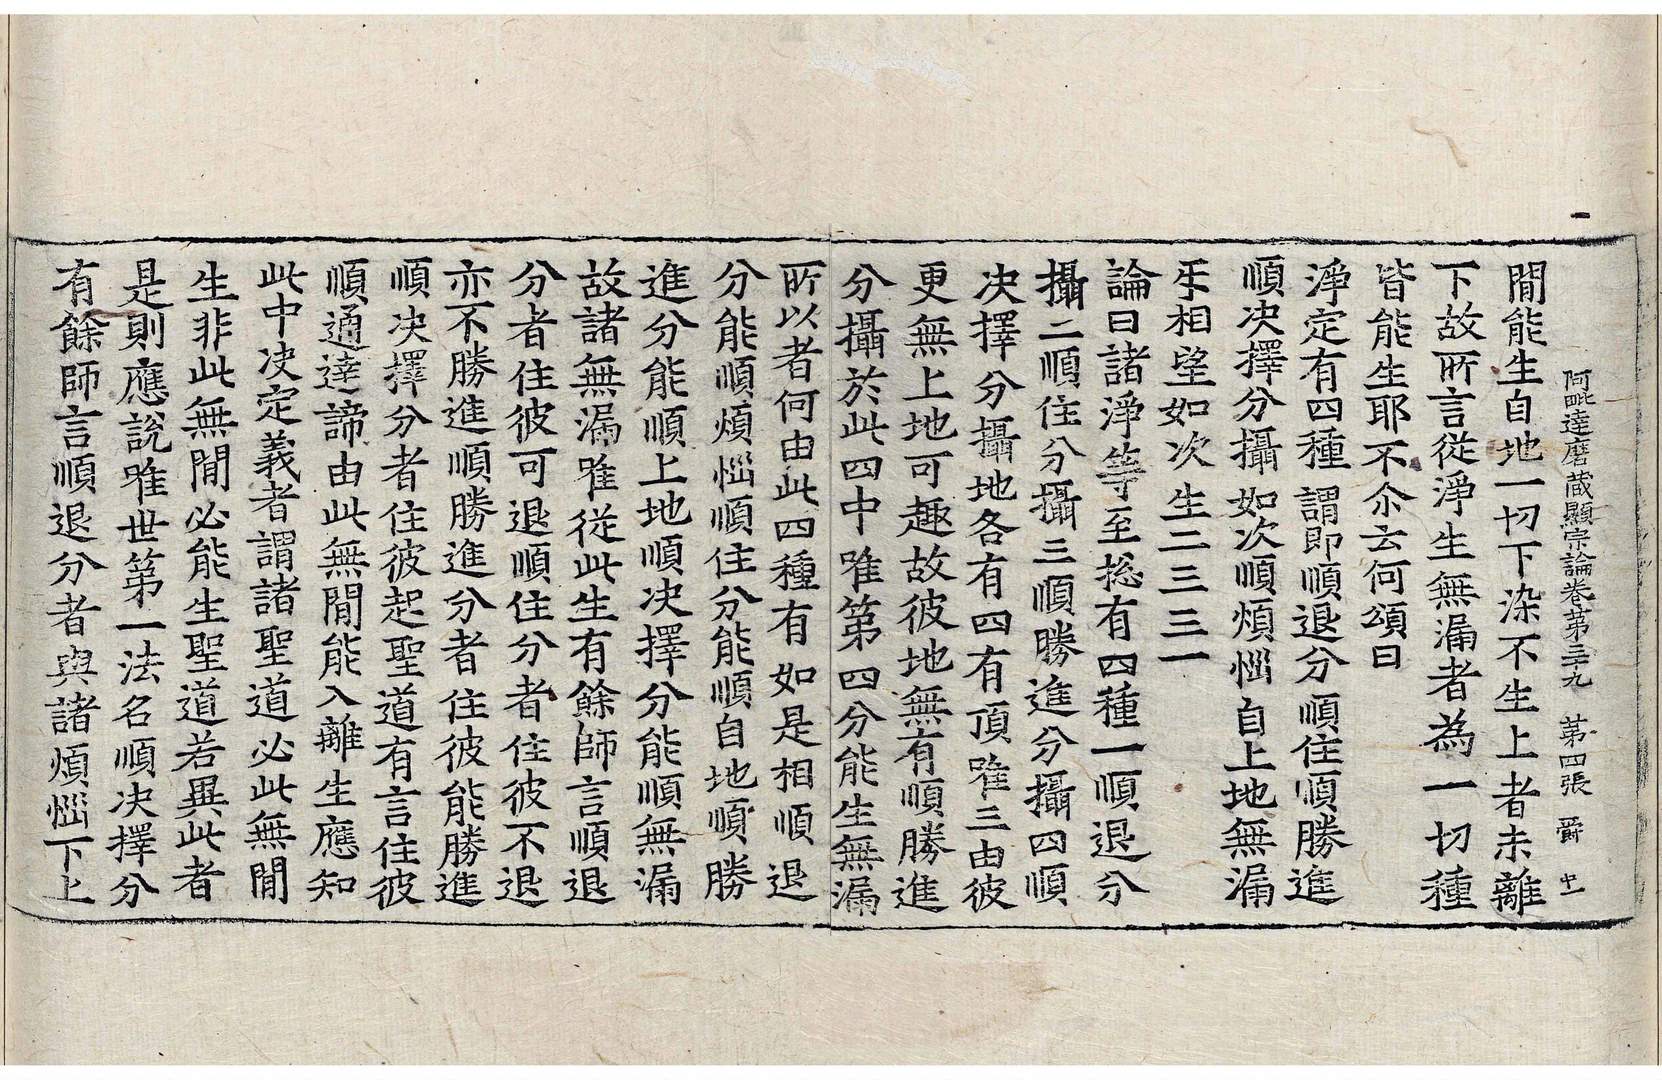 阿毗達磨藏顯宗論卷第三十九　第四張　爵
間能生自地一切下染不生上者未離
下故所言從淨生無漏者為一切種
皆能生耶不尒云何頌曰
淨定有四種　謂即順退分　順住順勝進
順決擇分攝　如次順煩惱　自上地無漏
㸦相望如次　生二三三一
論曰諸淨等至揔有四種一順退分
攝二順住分攝三順勝進分攝四順
決擇分攝地各有四有頂唯三由彼
更無上地可趣故彼地無有順勝進
分攝於此四中唯第四分能生無漏
所以者何由此四種有如是相順退
分能順煩惱順住分能順自地順勝
進分能順上地順決擇分能順無漏
故諸無漏唯從此生有餘師言順退
分者住彼可退順住分者住彼不退
亦不勝進順勝進分者住彼能勝進
順決擇分者住彼起聖道有言住彼
順通達諦由此無間能入離生應知
此中決定義者謂諸聖道必此無間
生非此無間必能生聖道若異此者
是則應說唯世第一法名順決擇分
有餘師言順退分者與諸煩惱下上